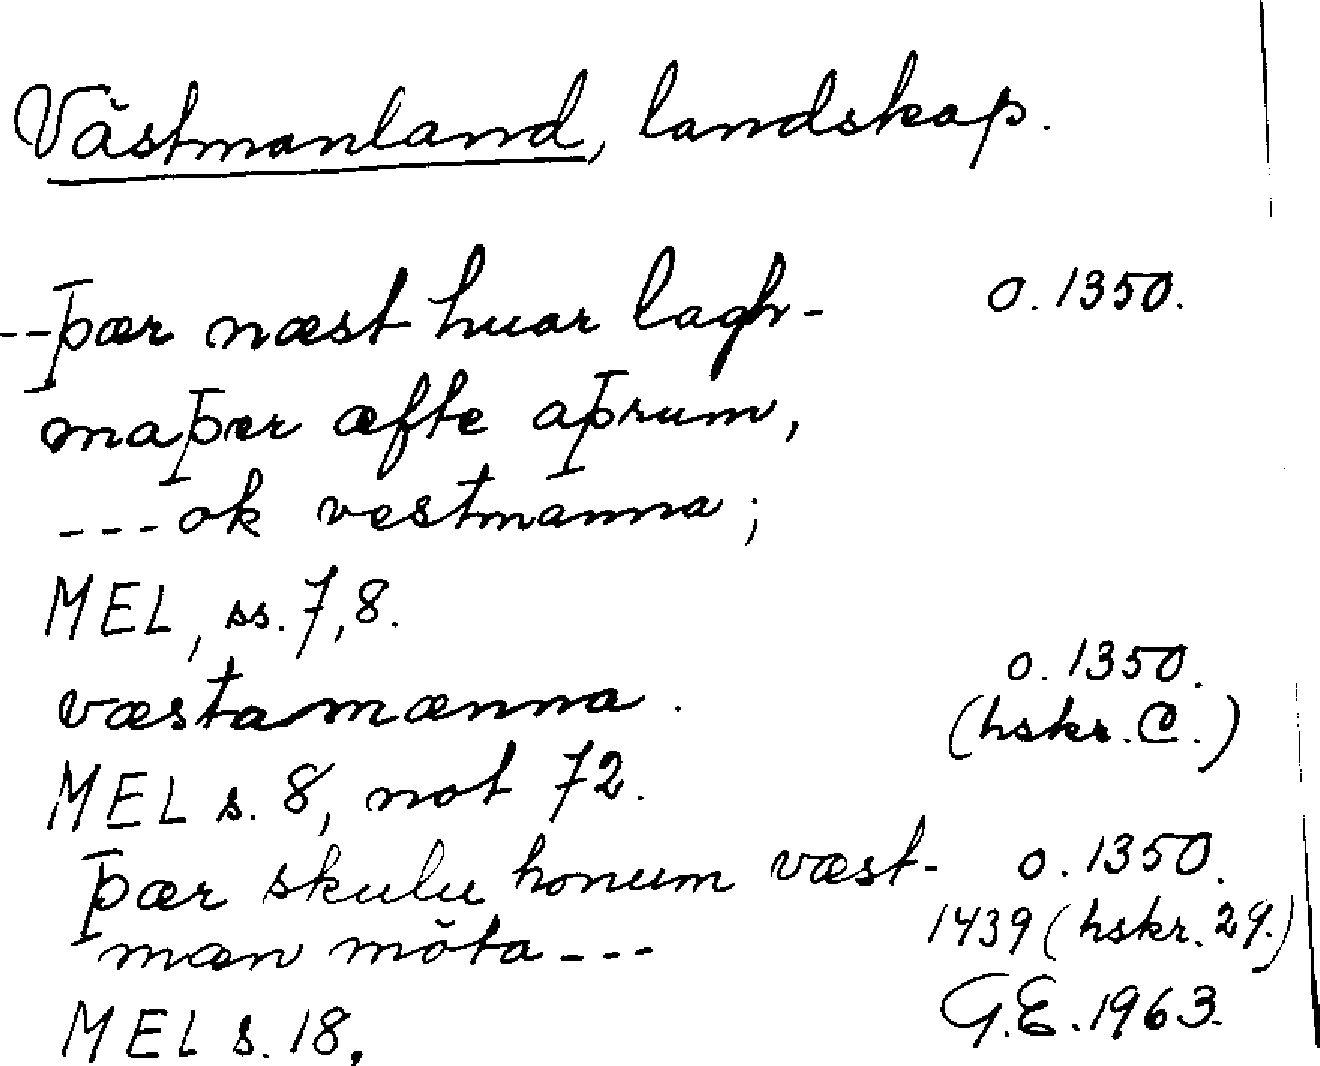 Västmanland, landskap.
--þær næst huar lagh- o. 1350.
maþær æfte aþrum,
---ok vestmanna;
MEL, ss. 7,8.
væstamænna. o. 1350.
(hskr. C.)
MEL s. 8, not 72.
þær skulu honum væst- o. 1350.
mæn möta --- 1439 (hskr. 29.)
MEL s. 18. G.E. 1963.